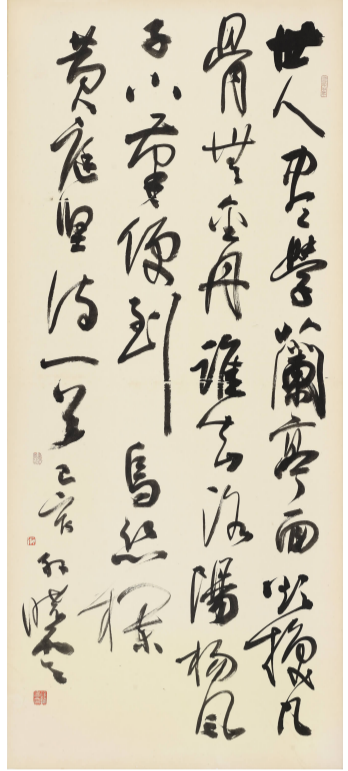 世人盡學蘭亭面欲換凡
骨無金丹誰知洛陽楊風
子下筆便到烏絲欄
黄庭堅詩一首 孫曉雲